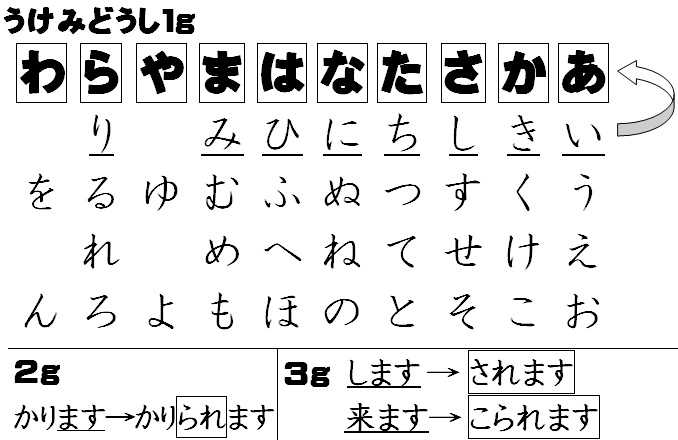 うけみどうし1g
わ ら や ま は な た さ か あ
り み ひ に ち し き い
を る ゆ む ふ ぬ つ す く う
れ め へ ね て せ け え
ん ろ よ も ほ の と そ こ お
2g
かります→かりられます
3g します→されます
来ます→こられます